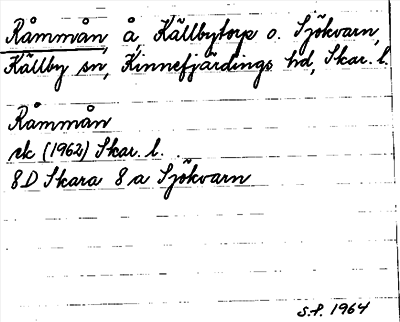 Råmmån, å, Källbytorp o. Sjökvarn,
Källby sn, Kinnefjärdings hd, Skar. l.
Råmmån
rk (1962) Skar. l.
8D Skara 8 a Sjökvarn
S.P. 1964